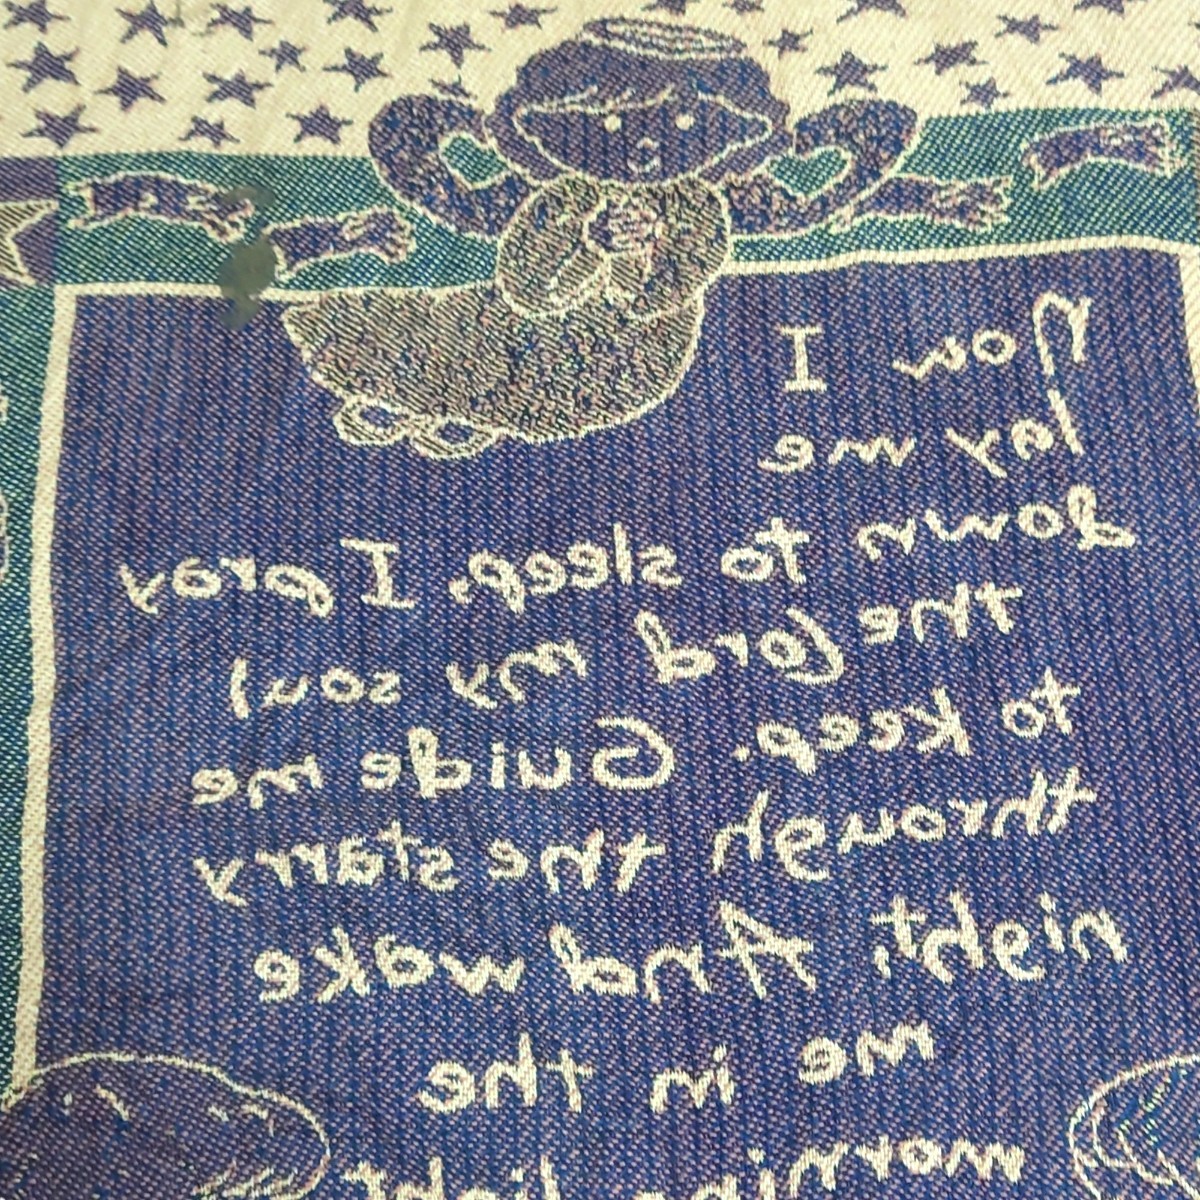 Now I
lay me
down to sleep, I pray
the Lord my soul
to keep. Guide me
through the starry
night, And wake
me in the
morning light